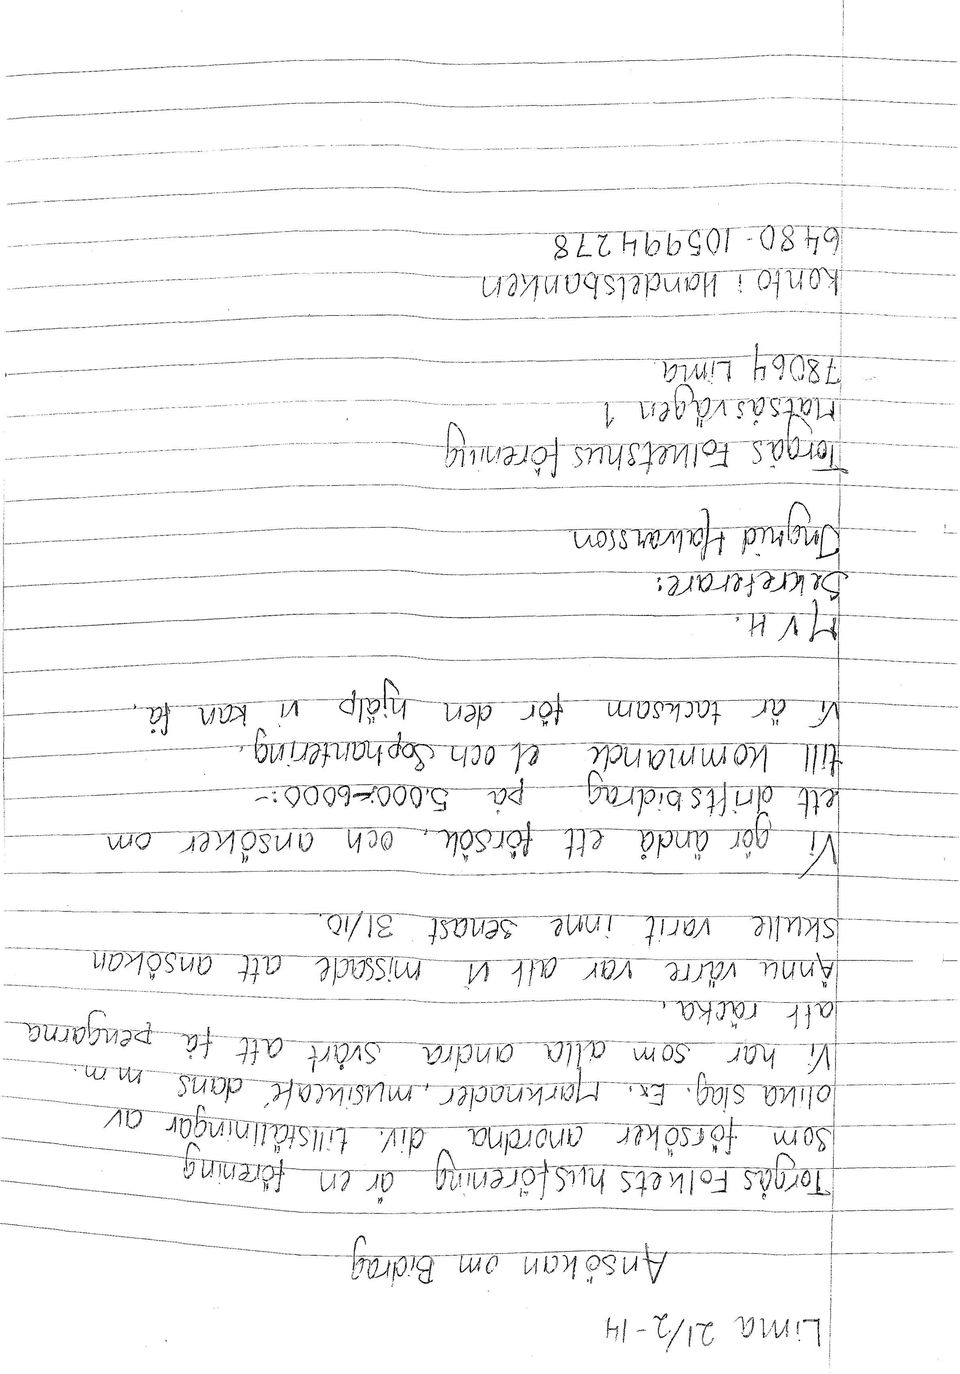 Lima 21/2-14
Ansökan om Bidrag
Torgås Folkets husförening är en förening
som försöker anordna div. tillställningar av
olika slag. Ex. Marknader, musikcafé, dans m.m.
Vi har som alla andra svårt att få pengarna
att räcka.
Ännu värre var att vi missade att ansökan
skulle varit inne senast 31/10.
Vi gör ändå ett försök, och ansöker om
ett driftsbidrag på 5.000:-6000:-
till kommande el och Sophantering.
Vi är tacksam för den hjälp vi kan få.
M V H.
Sekreterare:
Ingrid Halvarsson
Torgås Folketshus förening
Matsåsvägen 1
78064 Lima
Konto i Handelsbanken
6480-105994278